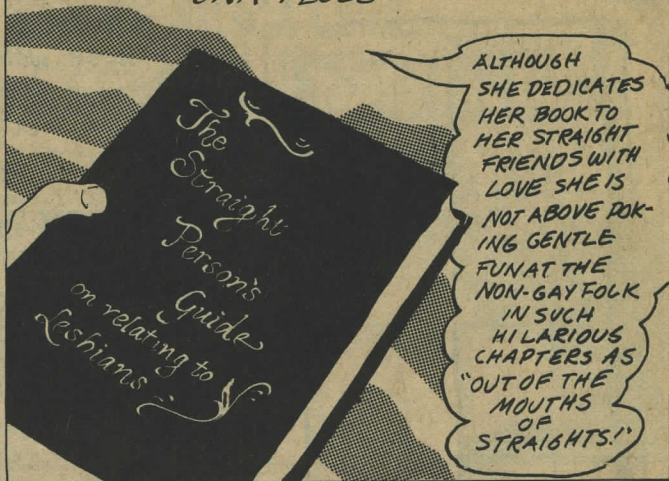 The
Straight
Person's
Guide
on relating to
Lesbians
ALTHOUGH
SHE DEDICATES
HER BOOK TO
HER STRAIGHT
FRIENDS WITH
LOVE SHE IS
NOT ABOVE POK-
ING GENTLE
FUN AT THE
NON-GAY FOLK
IN SUCH
HILARIOUS
CHAPTERS AS
"OUT OF THE
MOUTHS
OF
STRAIGHTS!"